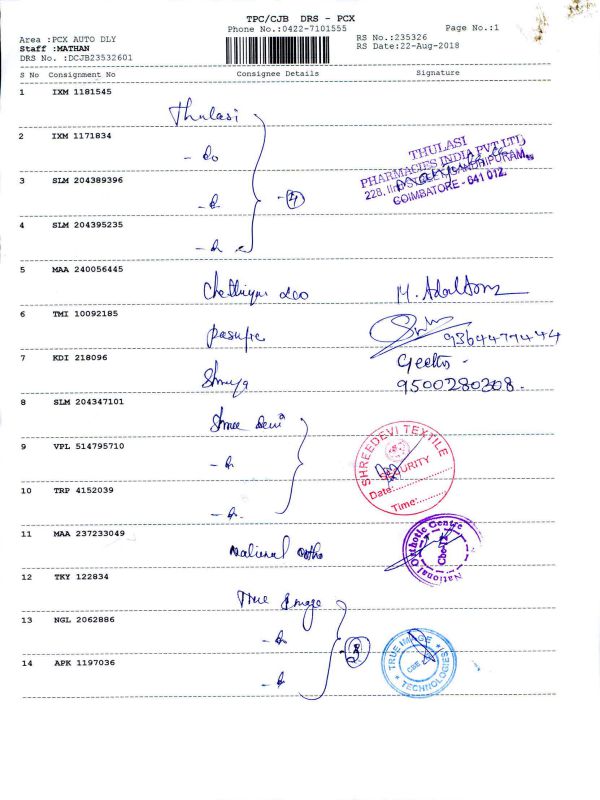 TPC/CJB DRS - PCX
Phone No.:0422-7101555
Page No.:1
Area :PCX AUTO DLY
RS No.:235326
Staff :MATHAN
RS Date:22-Aug-2018
DRS No. :DCJB23532601
S No Consignment No Consignee Details Signature
1 IXM 1181545
Thulasi
2 IXM 1171834
- do
THULASI
PHARMACIES INDIA PVT.LTD,
COIMBATORE - 641 012.
3 SLM 204389396
4 SLM 204395235
5 MAA 240056445
6 TMI 10092185
9364477444
7 KDI 218096
Geetha
9500280208.
8 SLM 204347101
Shree Devi
9 VPL 514795710
SHREEDEVI TEXTILE
SECURITY
Date:
Time:
10 TRP 4152039
11 MAA 237233049
National Ortho
National Orthotic Centre
Cbe-12
12 TKY 122834
True Image
13 NGL 2062886
14 APK 1197036
TRUE IMAGE
TECHNOLOGIES